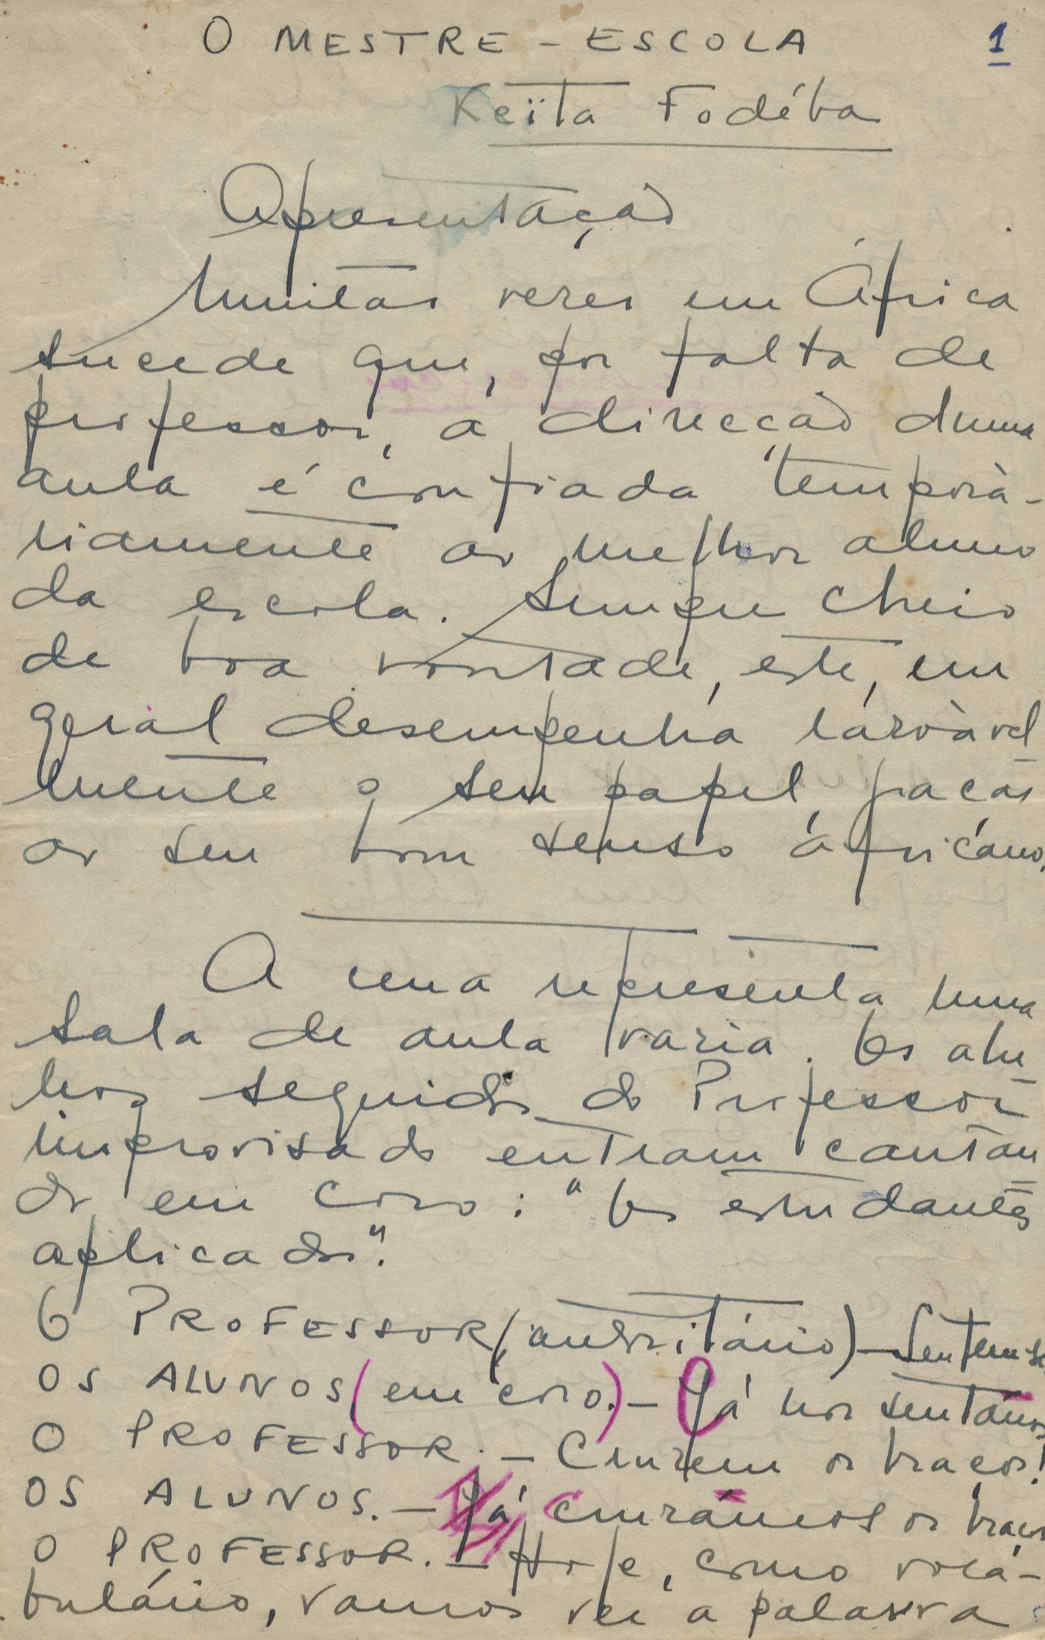 O MESTRE - ESCOLA 1
Keïta Fodéba
Apresentação
Muitas vezes em África
sucede que, por falta de
professor, a direcção duma
aula é confiada temporà-
riamente ao melhor aluno
da escola. Sempre cheio
de boa vontade, este, em
geral desempenha
mente o seu papel, graças
ao seu bom senso africano.
A cena representa uma
sala de aula vazia. Os alu
nos seguidos do Professor
improvisado entram cantan
do em coro: "Os estudantes
aplicados".
O PROFESSOR (autoritário) - Sentem-se
OS ALUNOS (em coro). - Já nos sentámos
O PROFESSOR. - Cruzem os braços!
OS ALUNOS. - Já cruzámos os braços
O PROFESSOR. - Hoje, como voca-
bulário, vamos ver a palavra